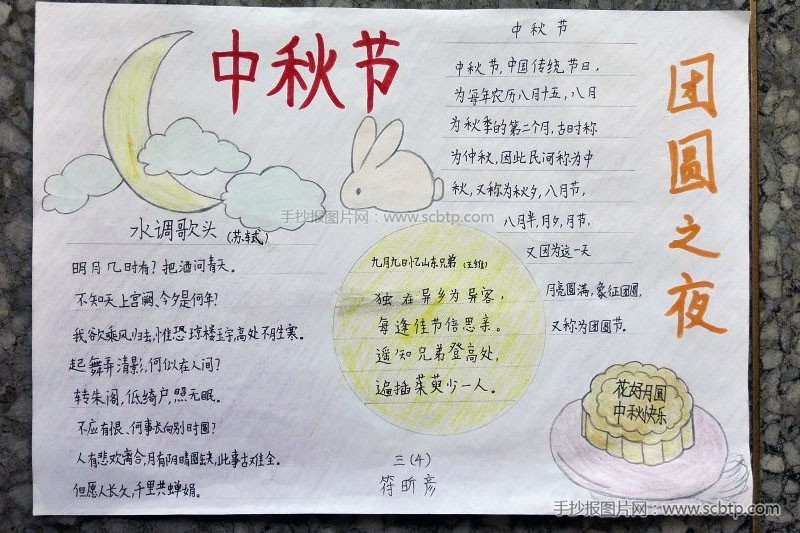 中秋节
中秋节
中秋节,中国传统节日,
为每年农历八月十五,八月
为秋季的第二个月,古时称
为仲秋,因此民间称为中
秋,又称为秋夕,八月节,
八月半,月夕,月节,
又因为这一天
月亮圆满,象征团圆,
又称为团圆节。
团圆之夜
手抄报图片网:www.scbtp.com
水调歌头(苏轼)
明月几时有?把酒问青天。
不知天上宫阙、今夕是何年?
我欲乘风归去,惟恐琼楼玉宇,高处不胜寒。
起舞弄清影,何似在人间?
转朱阁,低绮户,照无眠。
不应有恨、何事长向别时圆?
人有悲欢离合,月有阴晴圆缺,此事古难全。
但愿人长久,千里共蝉娟。
九月九日忆山东兄弟(王维)
独在异乡为异客,
每逢佳节倍思亲。
遥知兄弟登高处,
遍插茱萸少一人。
三(4)
符昕彦
花好月圆
中秋快乐
手抄报图片网:www.scbtp.com